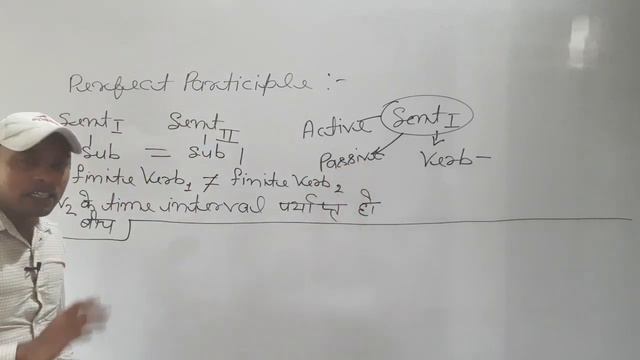 Perfect Participle :-
Sent I Sent II
Sub = Sub
finite Verb1 ≠ finite Verb2
V2 के time interval पर्याप्त हो
बीच
Active Sent I
Passive Verb -